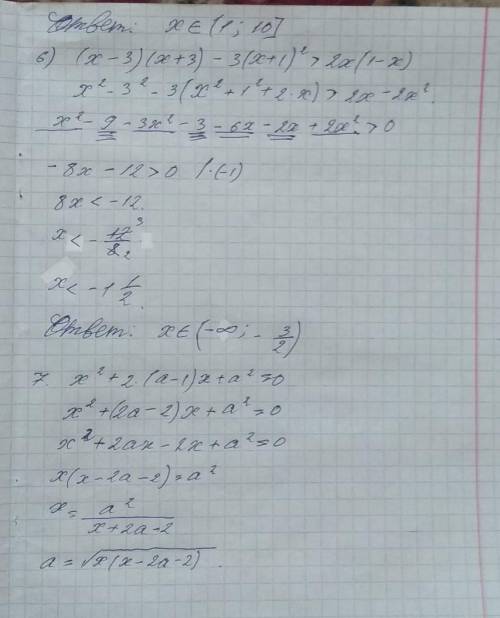 Ответ: x ∈ (1; 10]
6) (x-3)(x+3) - 3(x+1)² > 2x(1-x)
x² - 3² - 3(x² + 1² + 2·x) > 2x - 2x².
x² - 9 - 3x² - 3 - 6x - 2x + 2x² > 0
-8x - 12 > 0 /·(-1)
8x < -12.
x < - 12/8 3/2
x < -1 1/2.
Ответ: x ∈ (-∞; - 3/2)
7. x² + 2·(a-1)x + a² = 0
x² + (2a-2)x + a² = 0
x² + 2ax - 2x + a² = 0
x(x-2a-2) = a²
x = a²/(x+2a-2)
a = √x(x-2a-2).